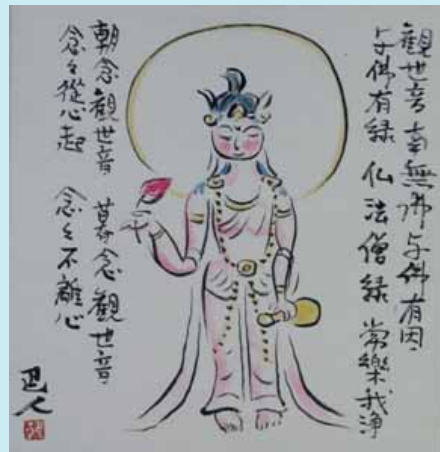 觀世音南無佛与佛有因
与佛有緣 仏法僧緣 常樂我淨
朝念觀世音 暮念觀世音
念々從心起 念々不離心